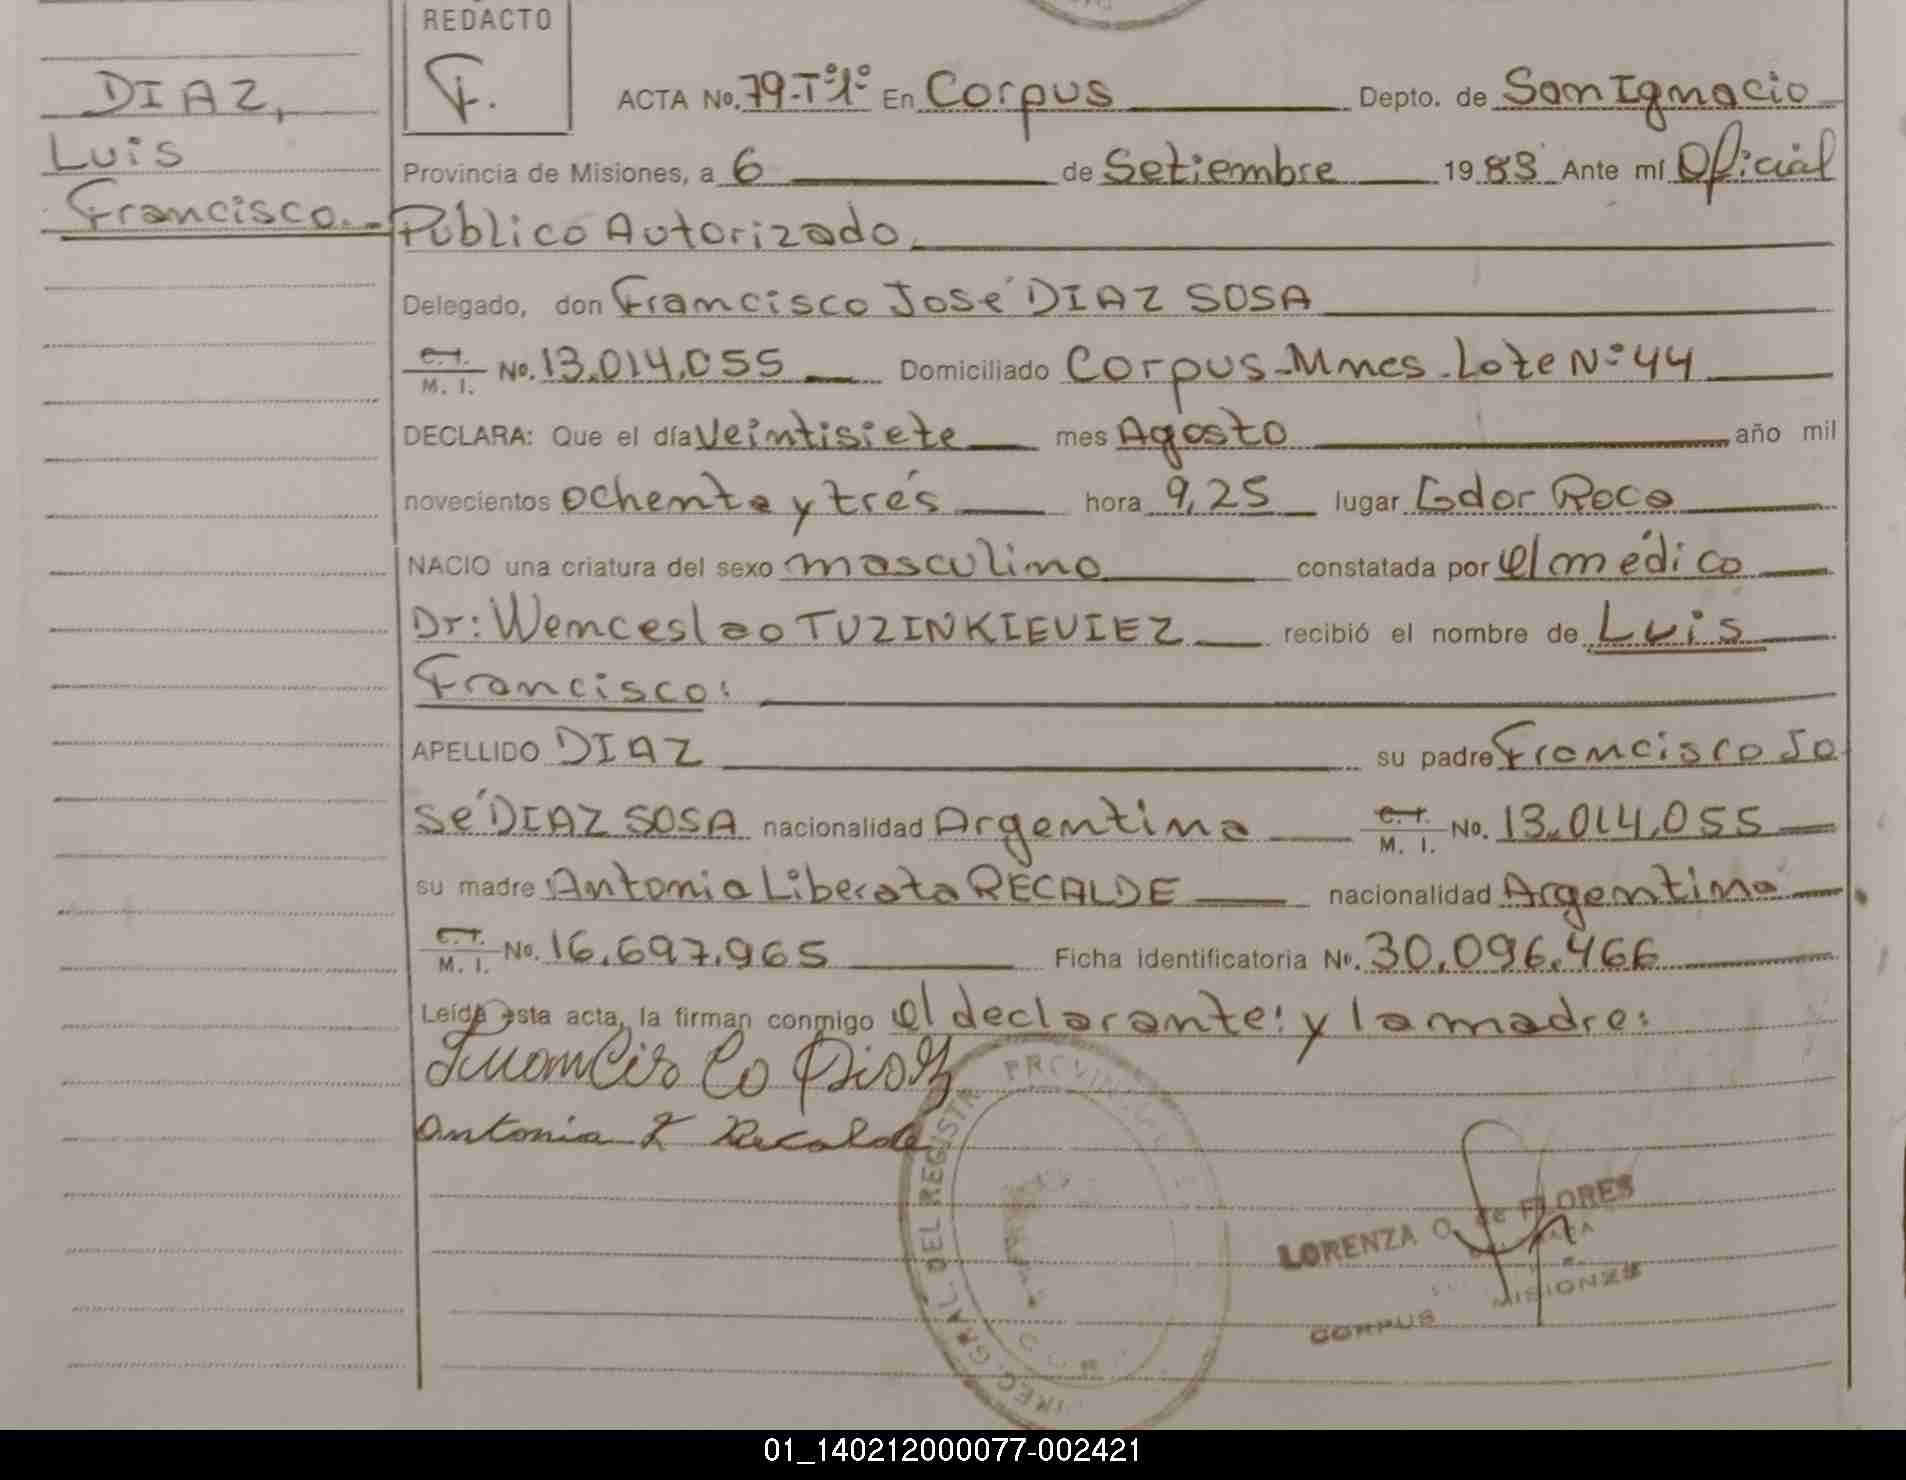 REDACTO
F.
DIAZ,
Luis
Francisco.-
ACTA No. 79-Tº1º En Corpus Depto. de San Ignacio
Provincia de Misiones, a 6 de Setiembre 1983 Ante mí Oficial
Público Autorizado.
Delegado, don Francisco José DIAZ SOSA
C.I. M. I. No. 13.014.055 Domiciliado Corpus-Mnes-Lote Nº 44
DECLARA: Que el día veintisiete mes Agosto año mil
novecientos ochenta y trés hora 9,25 lugar Gdor Roca
NACIO una criatura del sexo masculino constatada por el médico
Dr: Wenceslao TUZINKIEVIEZ recibió el nombre de Luis
Francisco:
APELLIDO DIAZ su padre Francisco Jo
sé DIAZ SOSA nacionalidad Argentina C.I. M. I. No. 13.014.055
su madre Antonia Liberata RECALDE nacionalidad Argentina
C.I. M. I. No. 16.697.965 Ficha identificatoria No. 30.096.466
Leída esta acta, la firman conmigo el declarante: y la madre:
Francisco Diaz
Antonia L Recalde
GRAL. DEL REGISTR PROVIN
LORENZA O. de FLORES
CORPUS MISIONES
01_140212000077-002421